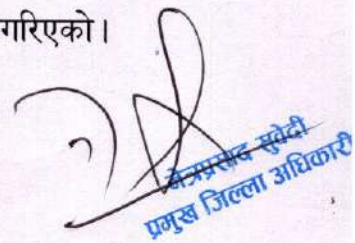 गरिएको ।
नेत्रप्रसाद सुवेदी
प्रमुख जिल्ला अधिकारी